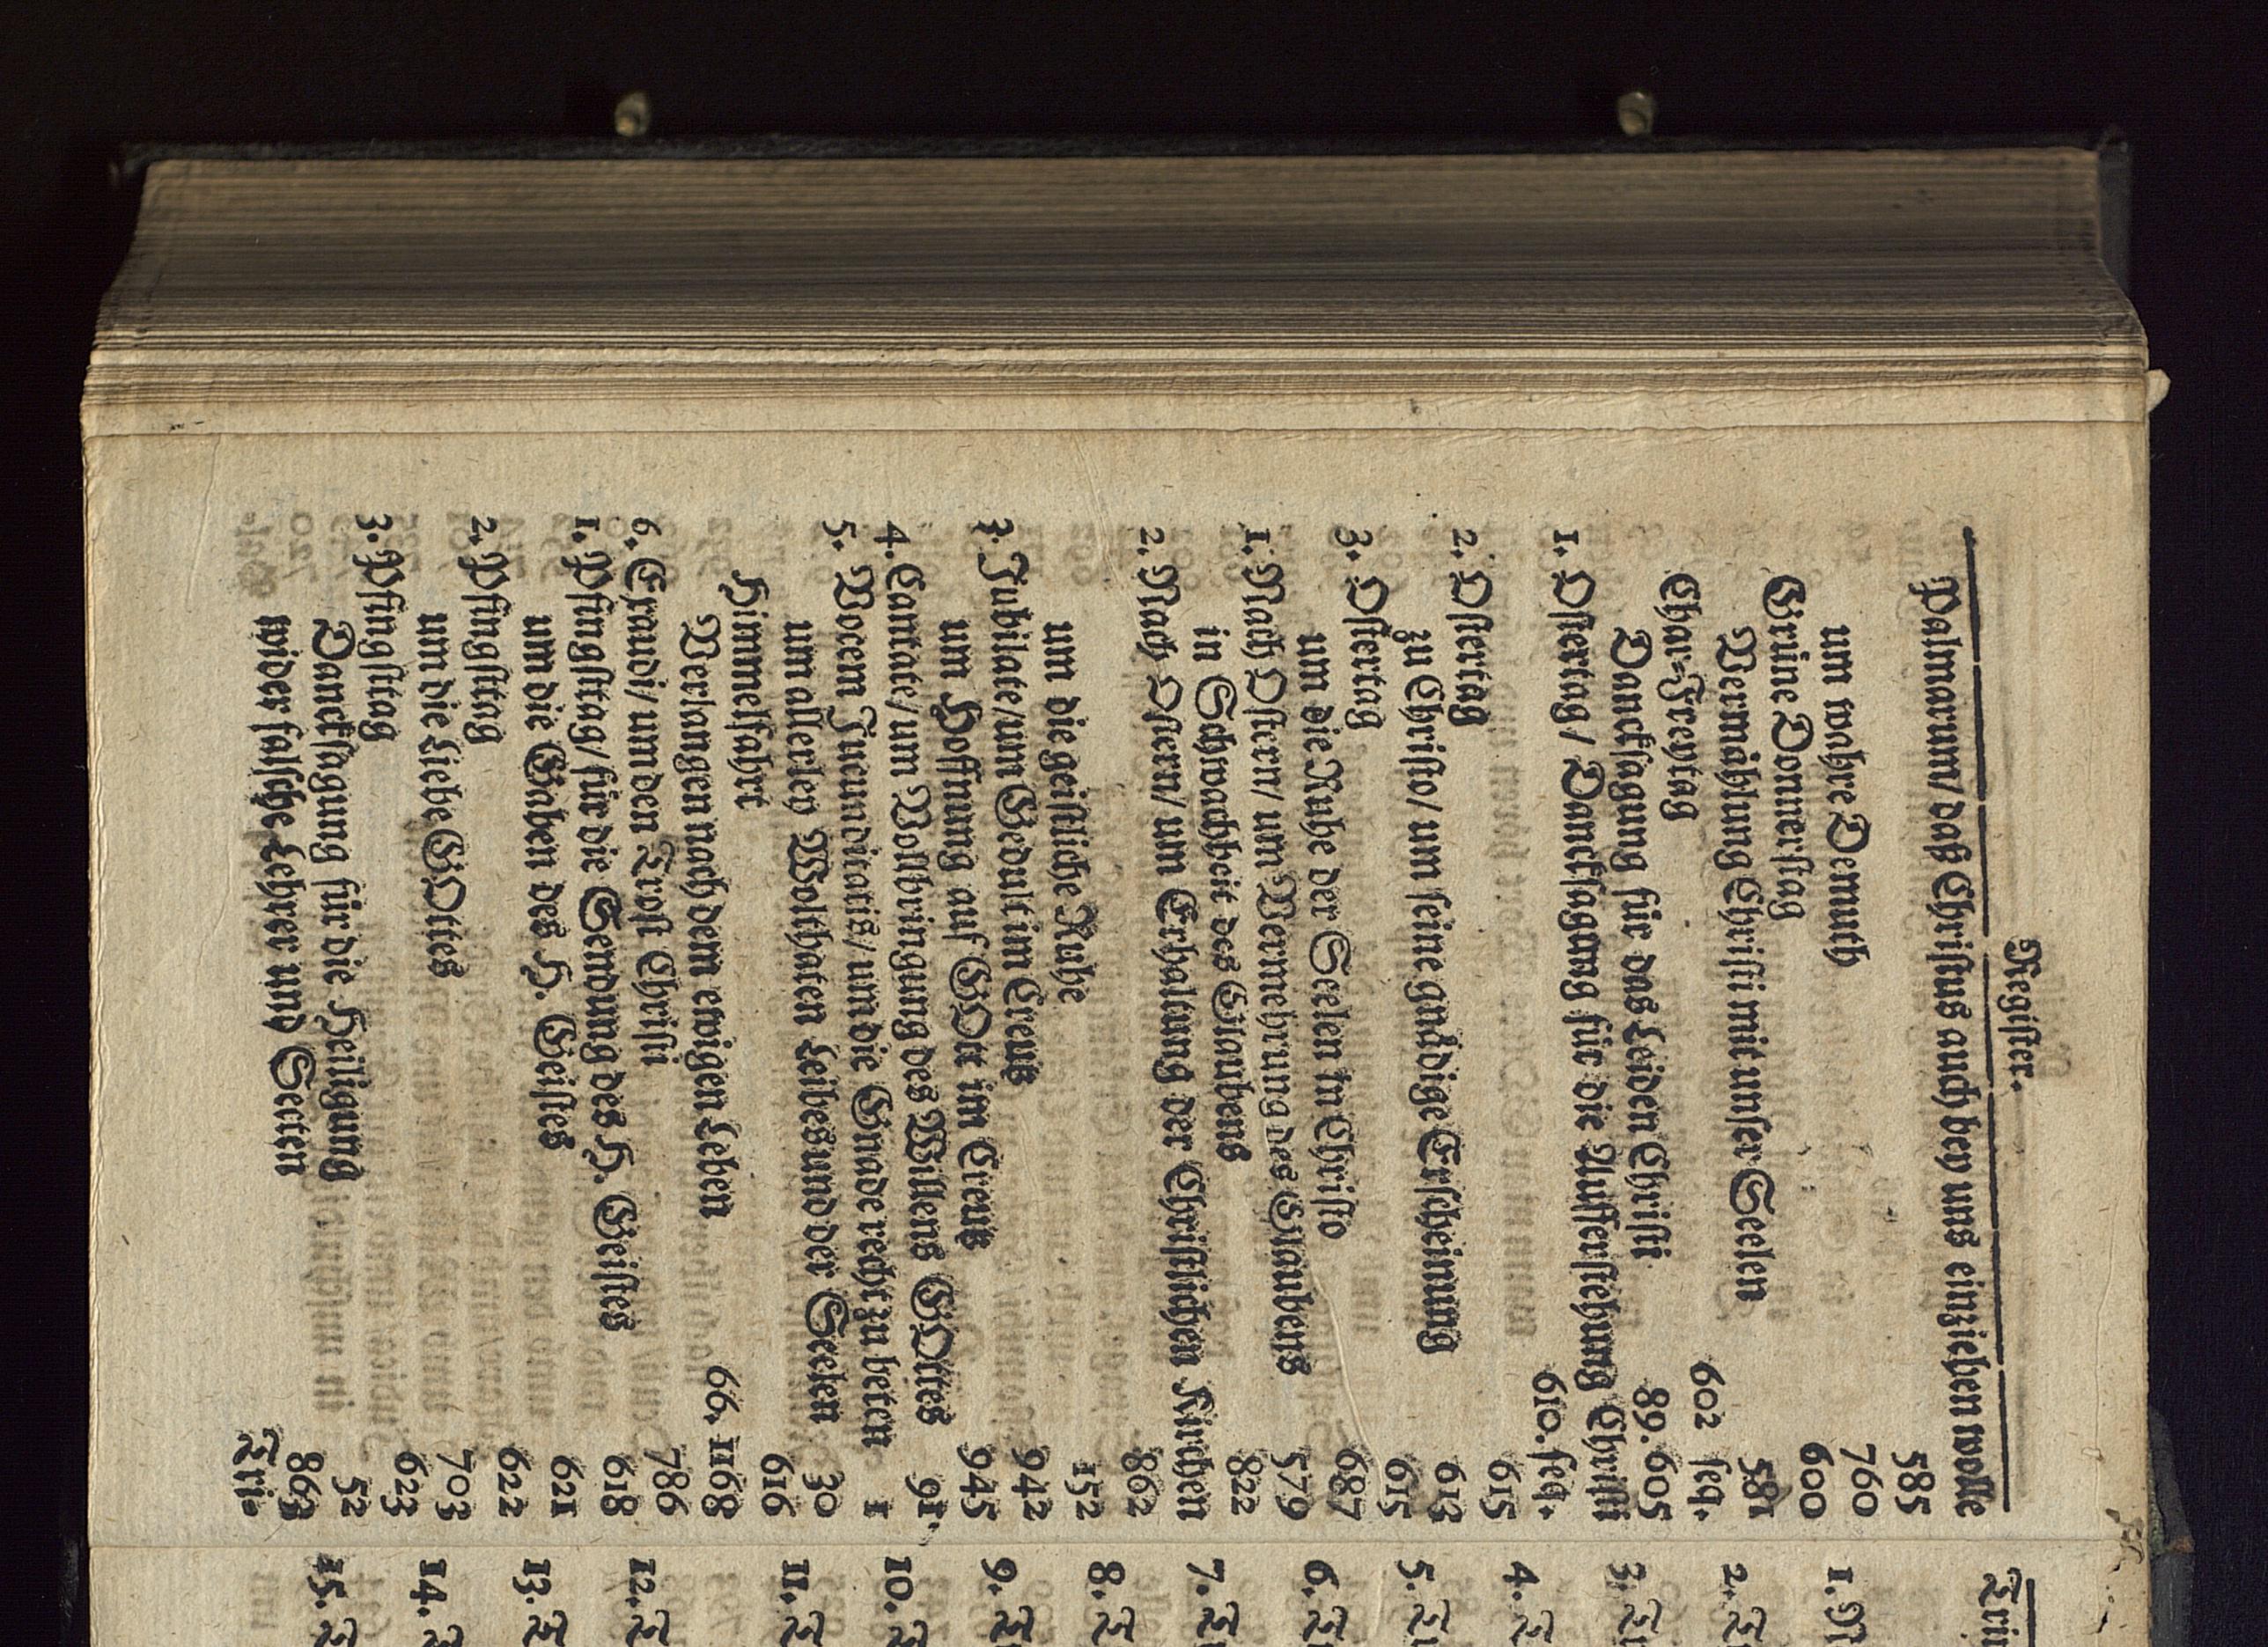 Register.
Palmarum/ daß Christus auch bey uns einziehen wolle
585
um wahre Demuth 760
Grüne Donnerstag 600
Vermählung Christi mit unser Seelen 581
Char-Freytag 602 seq.
Dancksagung für das Leiden Christi 89. 605
1. Ostertag/ Dancksagung für die Aufferstehung Christi
610. seq.
2. Ostertag 615
zu Christo/ um seine gnädige Erscheinung 613
3. Ostertag 615
um die Ruhe der Seelen in Christo 687
1. Nach Ostern/ um Vermehrung des Glaubens 579
in Schwachheit des Glaubens 822
2. Nach Ostern/ um Erhaltung der Christlichen Kirchen
862
um die geistliche Ruhe 152
3. Jubilate/ um Gedult im Creutz 942
um Hoffnung auf GOtt im Creutz 945
4. Cantate/ um Vollbringung des Willens GOttes 91.
5. Vocem Jucunditatis/ um die Gnade recht zu beten 1
um allerley Wolthaten Leibes und der Seelen 30
Himmelfahrt 616
Verlangen nach dem ewigen Leben 66. 1168
6. Exaudi/ um den Trost Christi 786
1. Pfingsttag/ für die Sendung des H. Geistes 618
um die Gaben des H. Geistes 621
2. Pfingsttag 622
um die Liebe GOttes 703
3. Pfingsttag 623
Dancksagung für die Heiligung 52
wider falsche Lehrer und Secten 863
Tri-
Tri
1. N
2. T
3. T
4. T
5. T
6. T
7. T
8. T
9. T
10. T
11. T
12. T
13. T
14. T
15. T